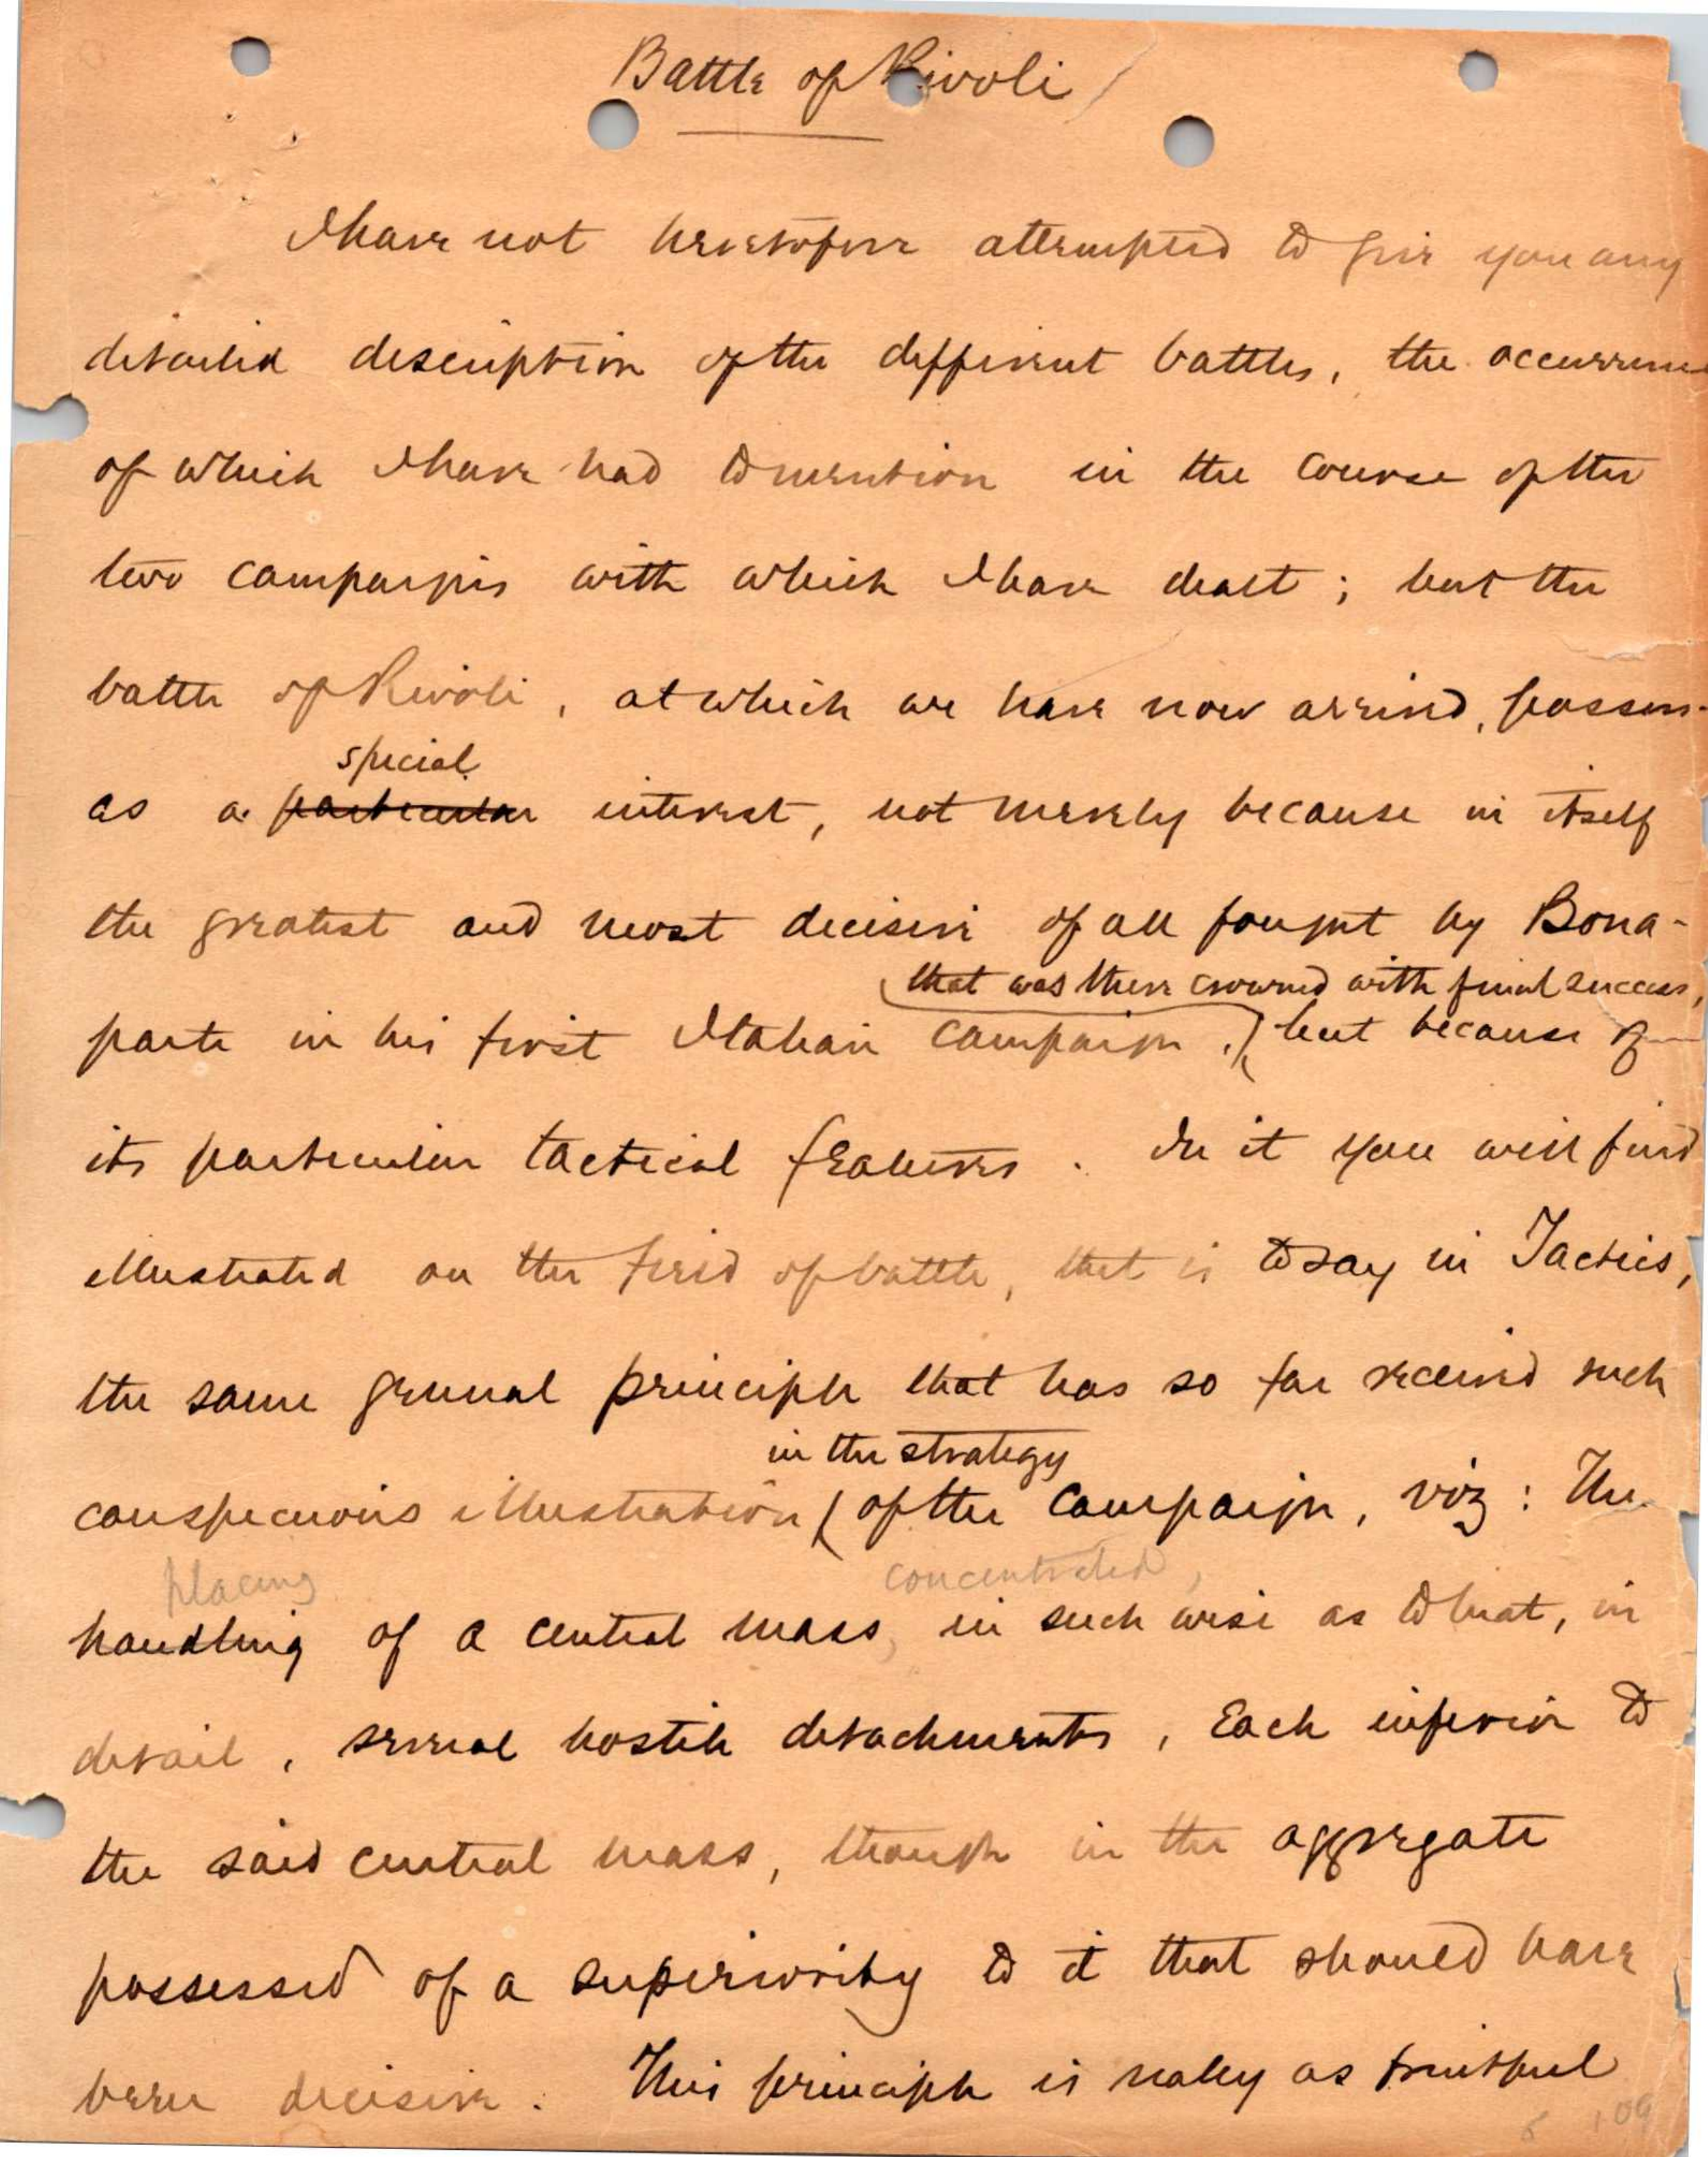 Battle of Rivoli
I have not heretofore attempted to give you any
detailed description of the different battles, the occurrence
of which I have had to mention in the course of the
two campaigns with which I have dealt; but the
battle of Rivoli, at which we have now arrived, possess-
special
es a particular interest, not merely because in itself
the greatest and most decisive of all fought by Bona-
that was there crowned with final success,
parte in his first Italian campaign, but because of
its particular tactical features. In it you will find
illustrated on the field of battle, that is to say in Tactics,
the same general principle that has so far received such
in the strategy
conspicuous illustration of the campaign, viz: The
placing concentrated,
handling of a central mass, in such wise as to beat, in
detail, several hostile detachments, each inferior to
the said central mass, though in the aggregate
possessed of a superiority to it that should have
been decisive. This principle is really as fruitful
109